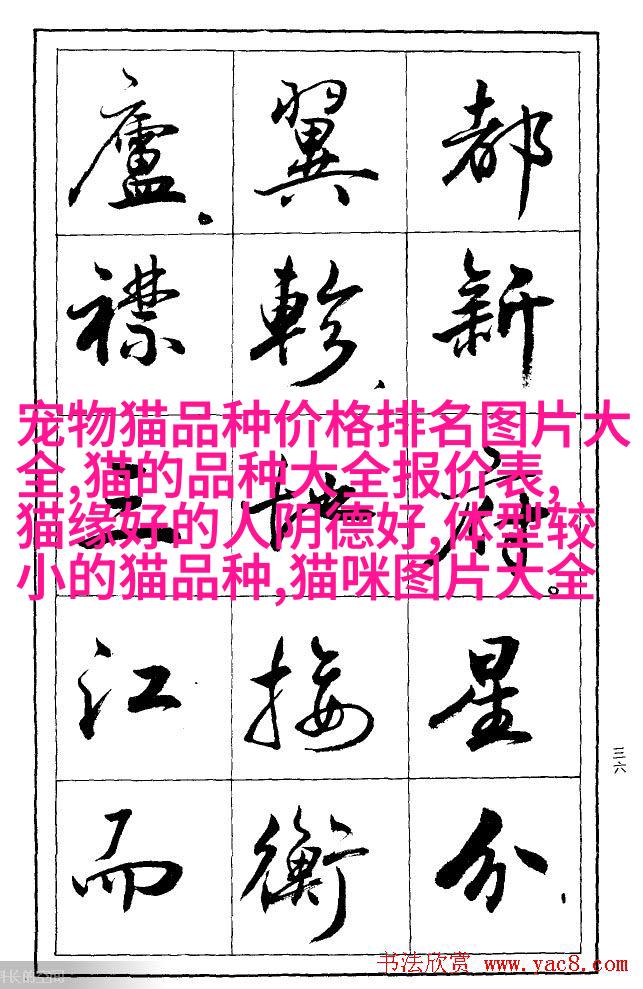 都新府。星分
翼軫、地接衡
廬。襟三江而
宠物猫品种价格排名图片大
全,猫的品种大全报价表,
猫缘好的人阴德好,体型较
小的猫品种,猫咪图片大全
三六
书法欣赏 www.yac8.com
长的空间